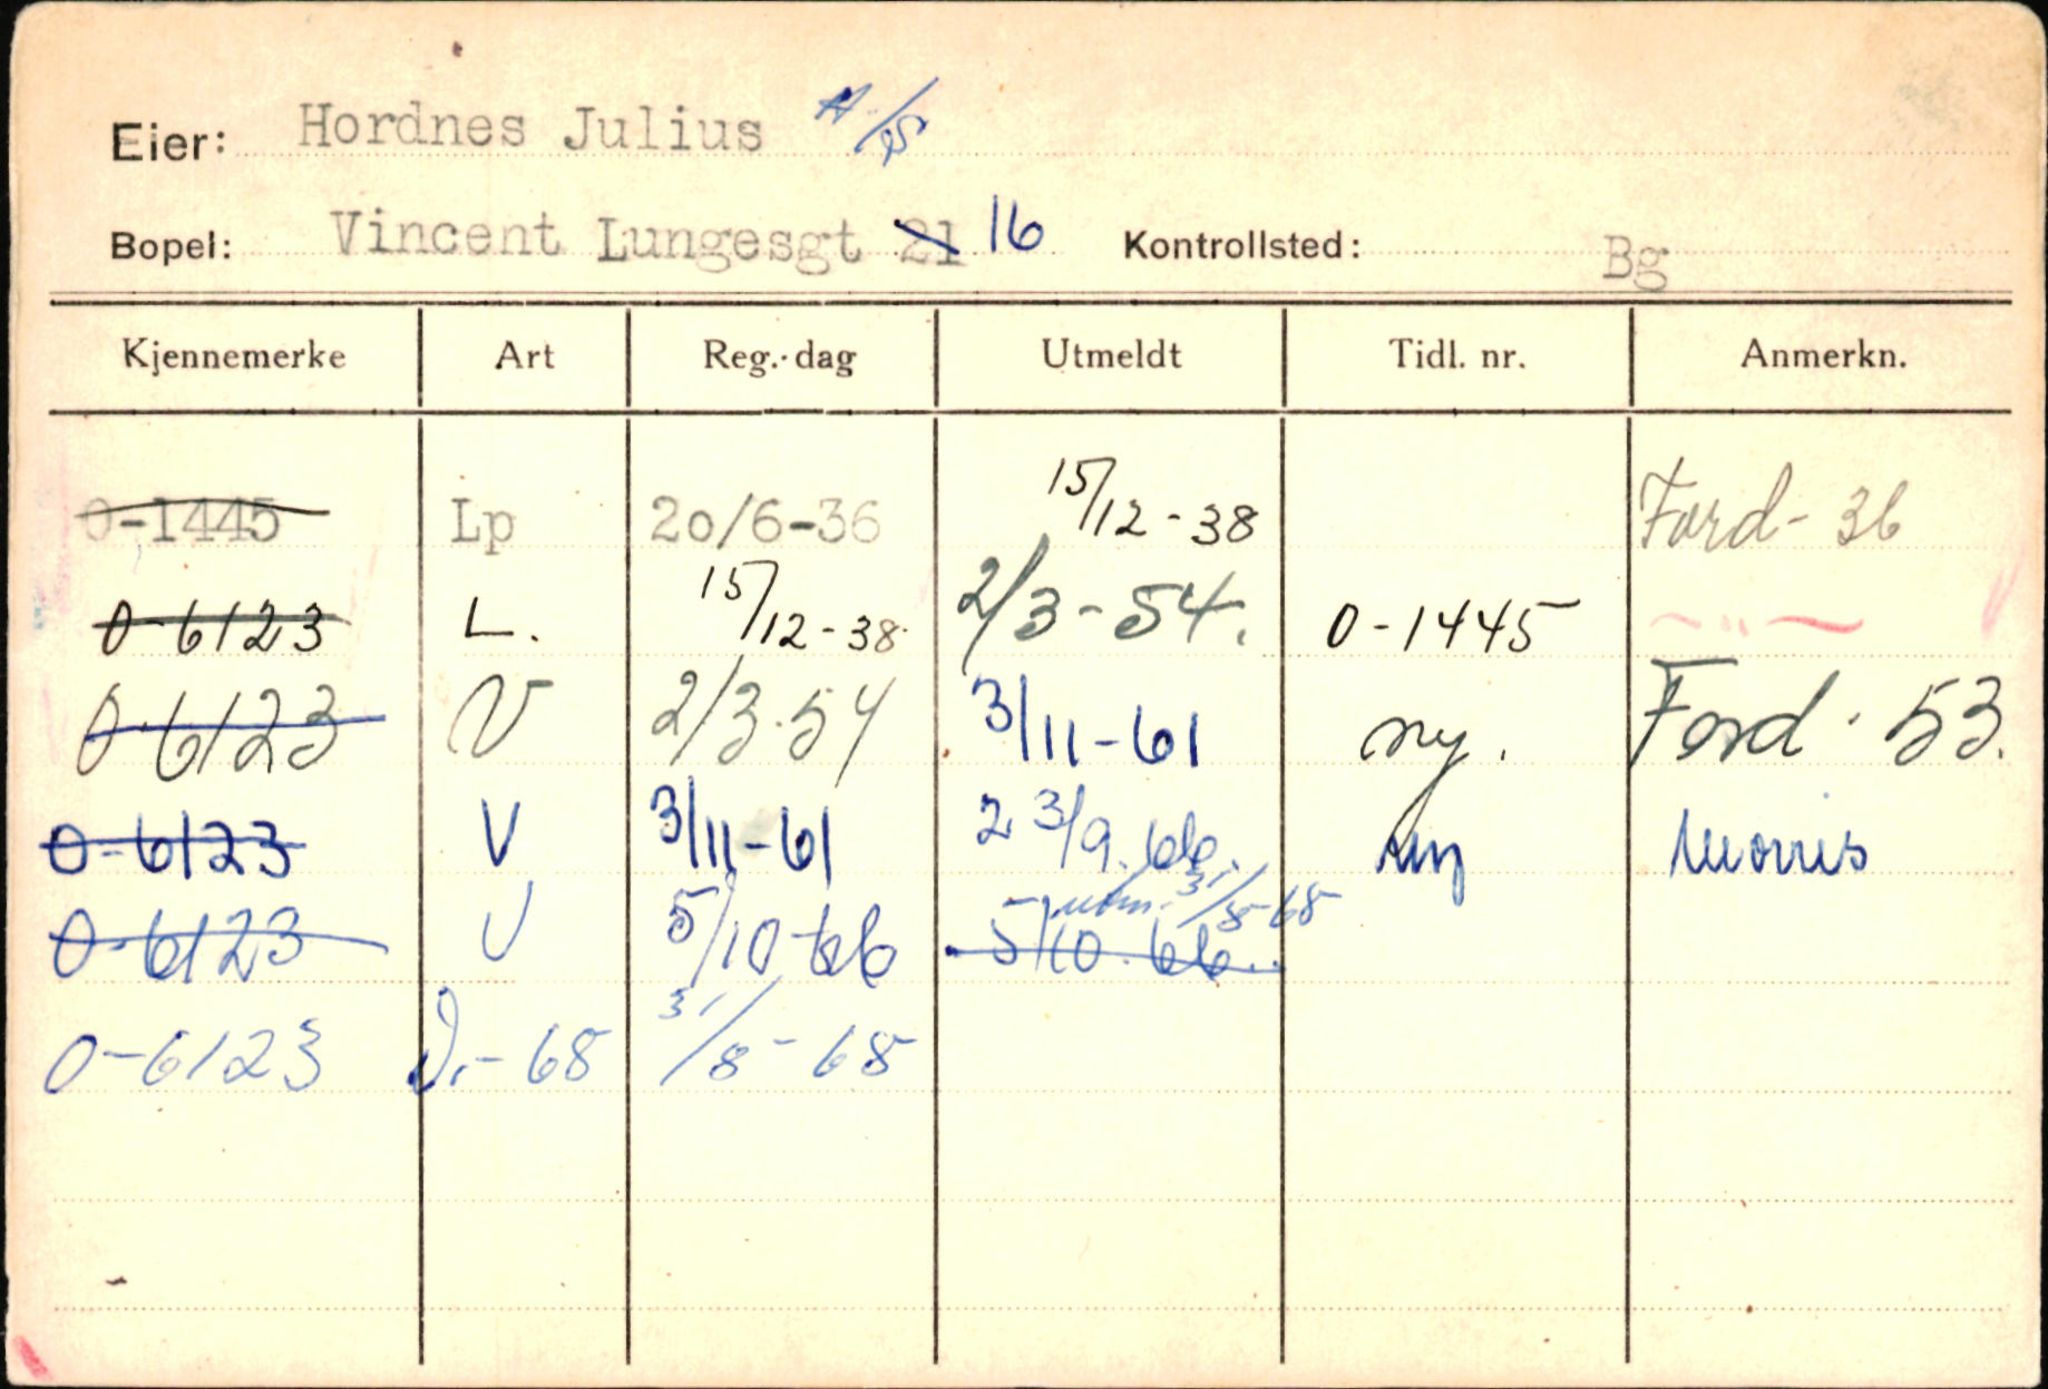 Eier: Hordnes Julius A/S
Bopel: Vincent Lungesgt 21 16 Kontrollsted: Bg
Kjennemerke Art Reg.-dag Utmeldt Tidl. nr. Anmerkn.
O-1445 Lp 2o/6-36 15/12-38 Ford-36
O-6123 L. 15/12-38 2/3-54. O-1445 - " -
O-6123 V 2/3-54 3/11-61 ny. Ford-53.
O-6123 V 3/11-61 23/9.66. ny Morris
O-6123 V 5/10-66 5/10.66. utm. 31/8-68
O-6123 V.-68 31/8-68